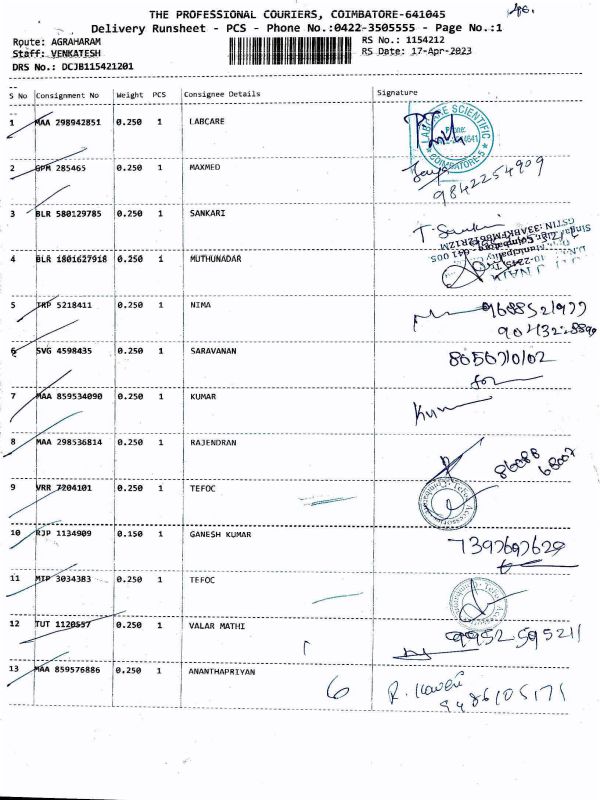 THE PROFESSIONAL COURIERS, COIMBATORE-641045
Delivery Runsheet - PCS - Phone No.:0422-3505555 - Page No.:1
Route: AGRAHARAM RS No.: 1154212
Staff: VENKATESH RS Date: 17-Apr-2023
DRS No.: DCJB115421201
S No Consignment No Weight PCS Consignee Details Signature
1 MAA 298942851 0.250 1 LABCARE
LABCARE SCIENTIFIC
COIMBATORE-5
2 GPM 285465 0.250 1 MAXMED
9842254909
3 BLR 580129785 0.250 1 SANKARI
4 BLR 1801627918 0.250 1 MUTHUNADAR
5 TRP 5218411 0.250 1 NIMA
6 SVG 4598435 0.250 1 SARAVANAN
7 MAA 859534090 0.250 1 KUMAR Kum
8 MAA 298536814 0.250 1 RAJENDRAN
86088
68007
9 VRR 7204101 0.250 1 TEFOC
10 RJP 1134909 0.150 1 GANESH KUMAR
11 MTP 3034383 0.250 1 TEFOC
12 TUT 1120557 0.250 1 VALAR MATHI 9952595211
13 MAA 859576886 0.250 1 ANANTHAPRIYAN 6